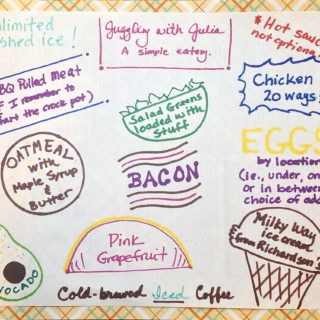 Juggling with Julia
A simple eatery.
*Hot
not optional
ished ice!
BBQ Pulled Meat
I remember to
the crock pot)
Salad Greens
loaded with
Stuff
Chicken
20 ways
OATMEAL
with
Maple Syrup
&
Butter
BACON
EGGS
by location
(i.e., under, on
or in between
choice of
Pink
Grapefruit
Milky Way
ice cream
from Richardson
AVOCADO
Cold-brewed Iced Coffee